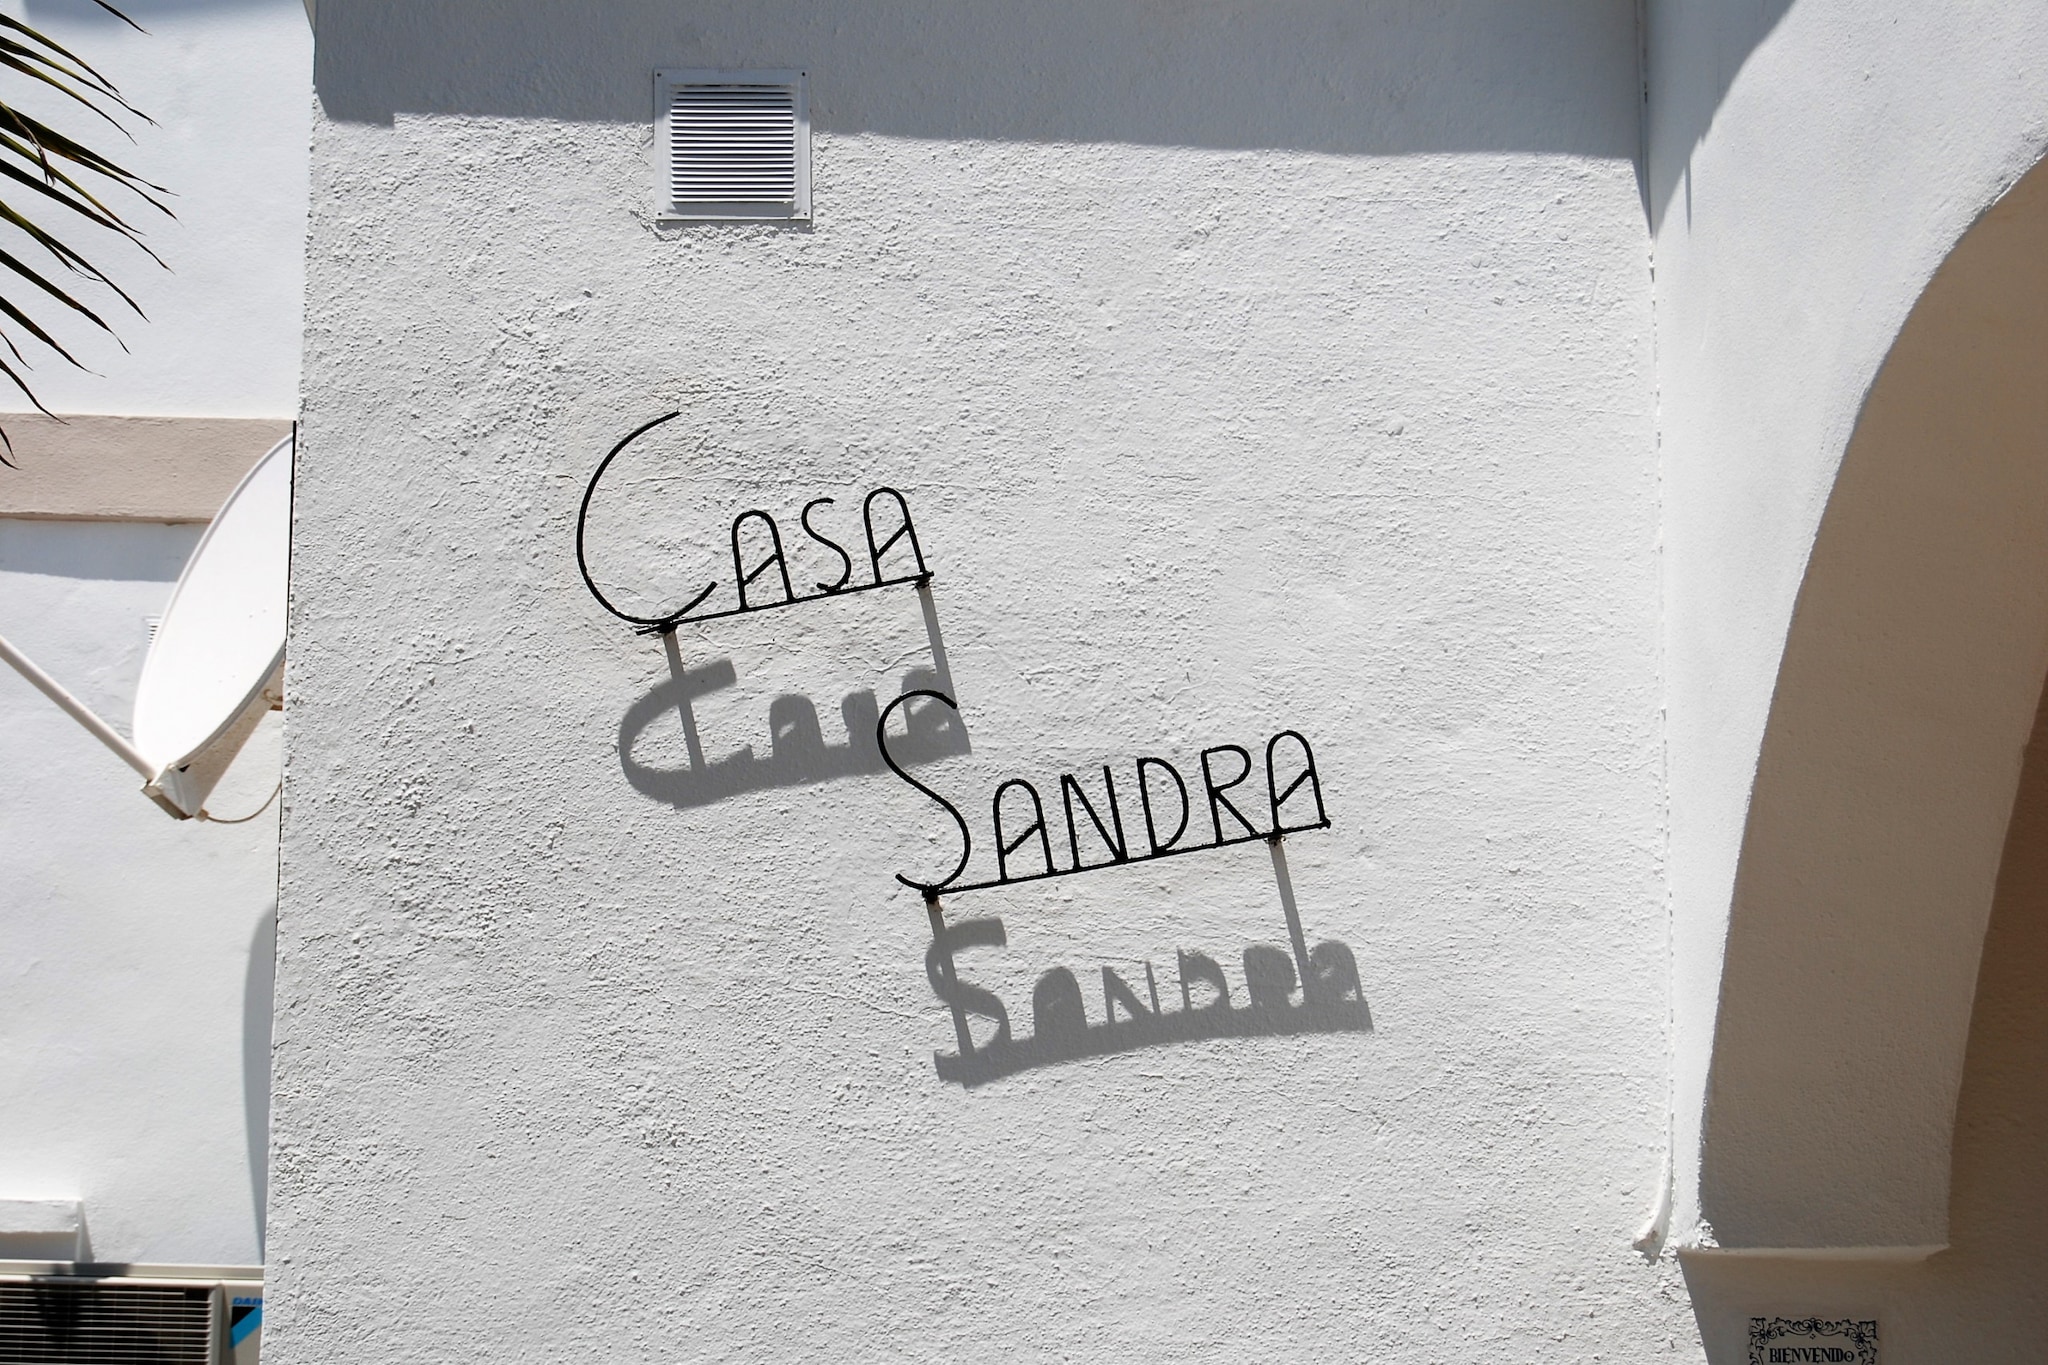 CASA
SANDRA
BIENVENIDO